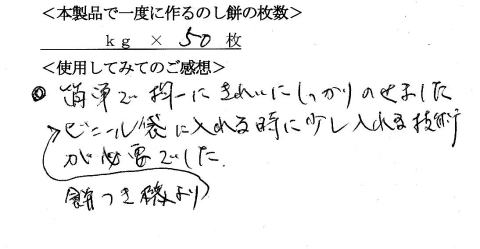 ＜本製品で一度に作るのし餅の枚数＞
kg × 50 枚
＜使用してみてのご感想＞
◎ 簡単で均一にきれいにしっかりのせました
ビニール袋に入れる時に少し入れる技術
が必要でした。
餅つき機より